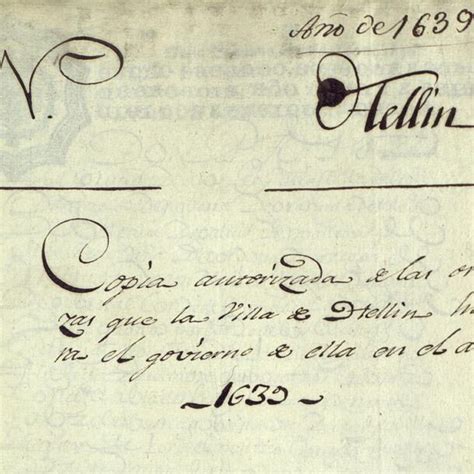 Año de 1639
N.
Hellin
Copia autorizada de las or
zas que la Villa de Hellin hi
ra el govierno de ella en el a
1639